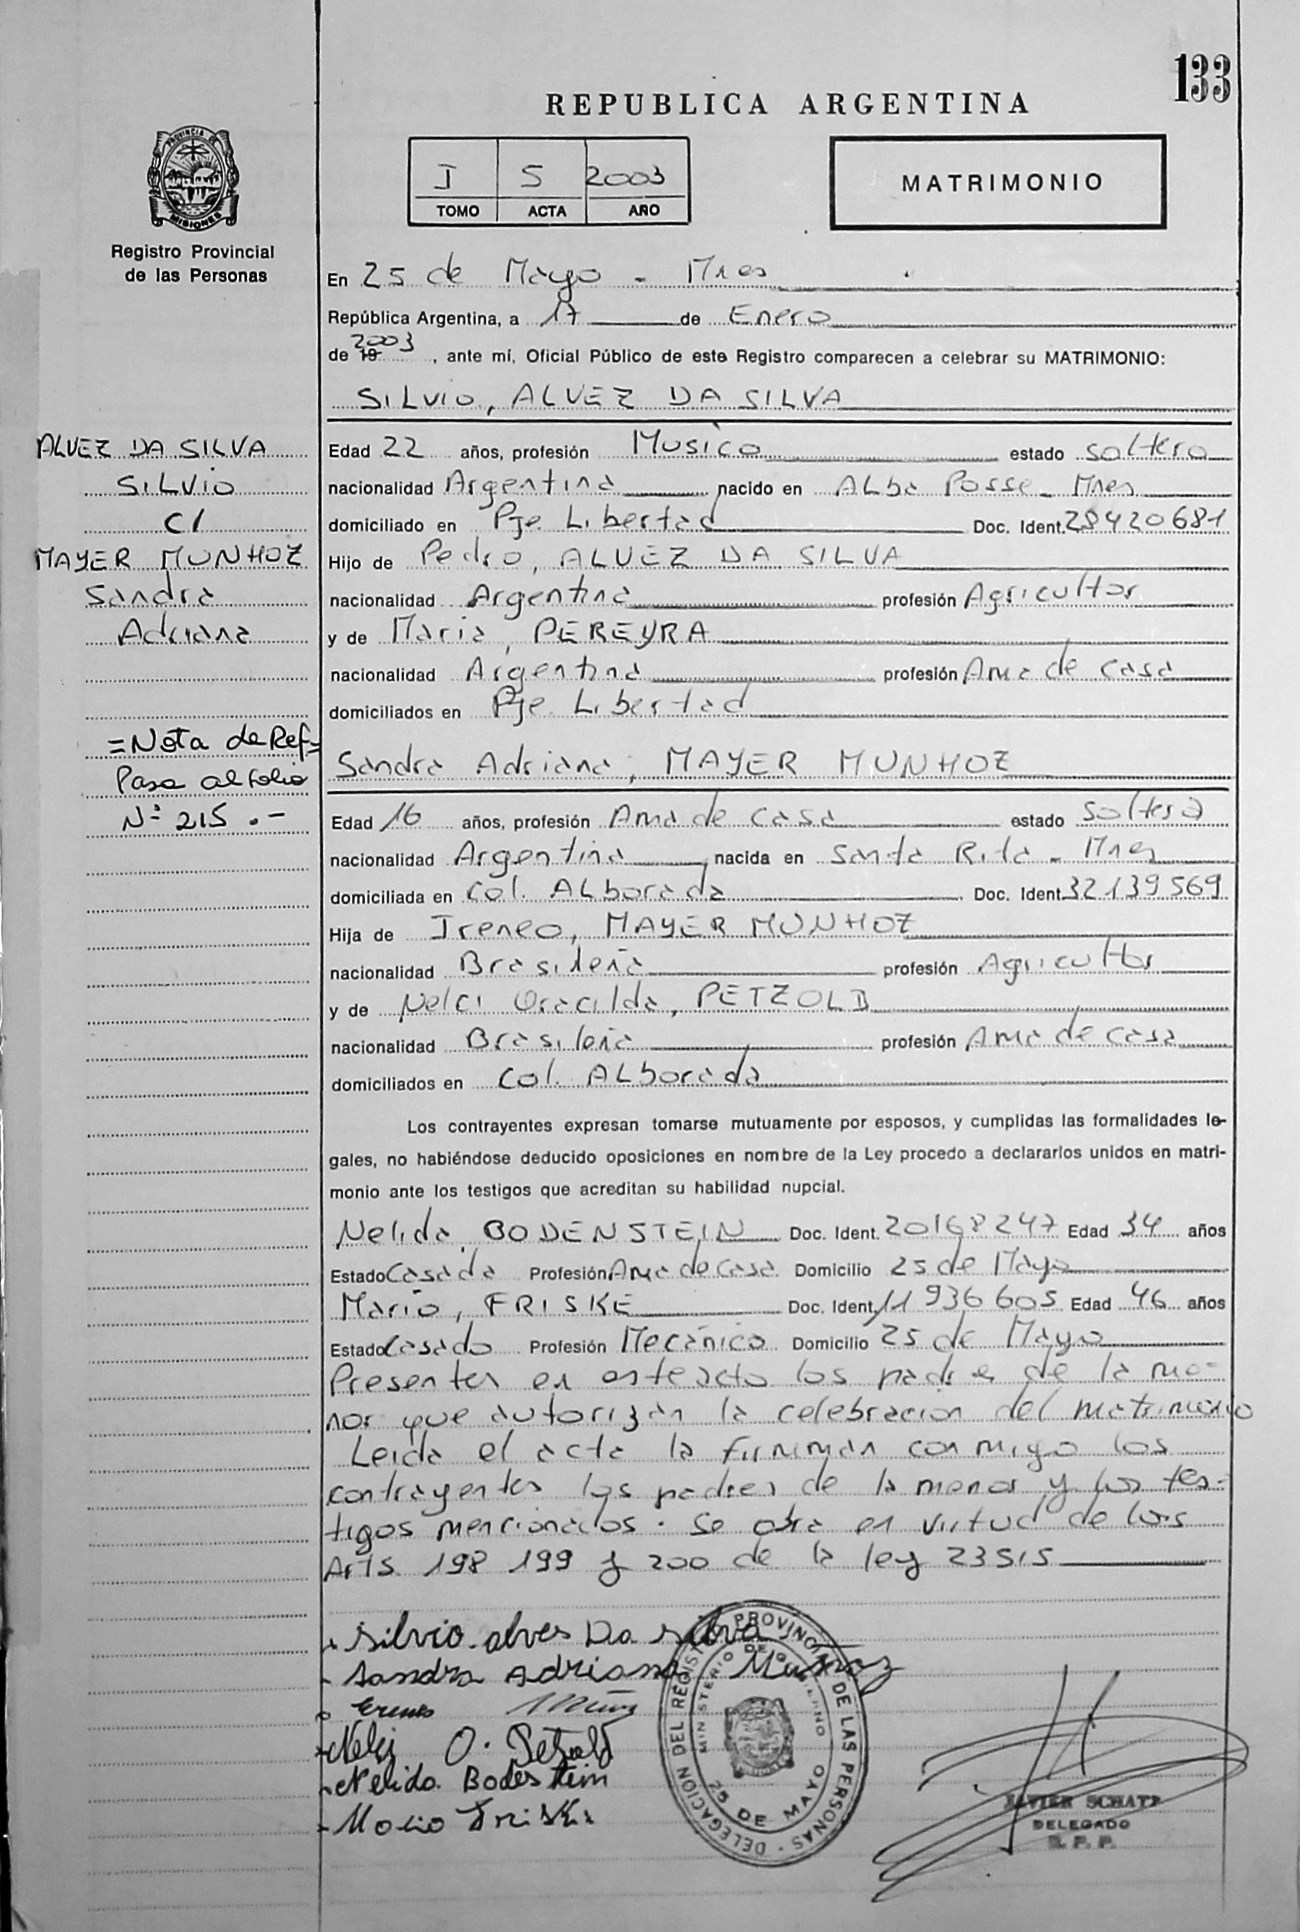 133
REPUBLICA ARGENTINA
PROVINCIA DE
MISIONES
Registro Provincial
de las Personas
I 5 2003
TOMO ACTA AÑO
MATRIMONIO
En 25 de Mayo - Mnes
República Argentina, a 17 de Enero
de 19 2003, ante mí, Oficial Público de este Registro comparecen a celebrar su MATRIMONIO:
SILVIO, ALVEZ DA SILVA
ALVEZ DA SILVA
SILVIO
C/
MAYER MUNHOZ
Sandra
Adriana
=Nota de Ref=
Pasa al folio
Nº 215.-
Edad 22 años, profesión Musico estado soltero
nacionalidad Argentina nacido en Alba Posse - Mnes
domiciliado en Pje Libertad Doc. Ident. 28420681
Hijo de Pedro, ALVEZ DA SILVA
nacionalidad Argentina profesión Agricultor
y de Maria, PEREYRA
nacionalidad Argentina profesión Ama de casa
domiciliados en Pje Libertad
Sandra Adriana, MAYER MUNHOZ
Edad 16 años, profesión Ama de casa estado soltera
nacionalidad Argentina nacida en Santa Rita - Mnes
domiciliada en Col. ALborada Doc. Ident. 32139569
Hija de Ireneo, MAYER MUNHOZ
nacionalidad Brasileña profesión Agricultor
y de Nelci Oracilda, PETZOLD
nacionalidad Brasileña profesión Ama de casa
domiciliados en Col. ALborada
Los contrayentes expresan tomarse mutuamente por esposos, y cumplidas las formalidades le-
gales, no habiéndose deducido oposiciones en nombre de la Ley procedo a declararlos unidos en matri-
monio ante los testigos que acreditan su habilidad nupcial.
Nelida, BODENSTEIN Doc. Ident. 20168247 Edad 34 años
Estado Casada Profesión Ama de casa Domicilio 25 de Mayo
Mario, FRISKE Doc. Ident. 11936605 Edad 46 años
Estado Casado Profesión Mecánico Domicilio 25 de Mayo
Presentes en este acto los padres de la me-
nor que autorizan la celebracion del matrimonio
Leida el acta la firman conmigo los
contrayentes los padres de la menor y los tes-
tigos mencionados. Se obra en virtud de los
Arts 198 199 y 200 de la ley 23515
Silvio alves Da silva
Sandra Adriana Muñoz
Ereneo Muñoz
Nelci O. Petzold
Nelida Bodestein
Mario Friske
DELEGACION DEL REGISTRO PROVINCIAL DE LAS PERSONAS
MINISTERIO DE GOBIERNO
25 DE MAYO
JAVIER SCHATZ
DELEGADO
R. P. P.